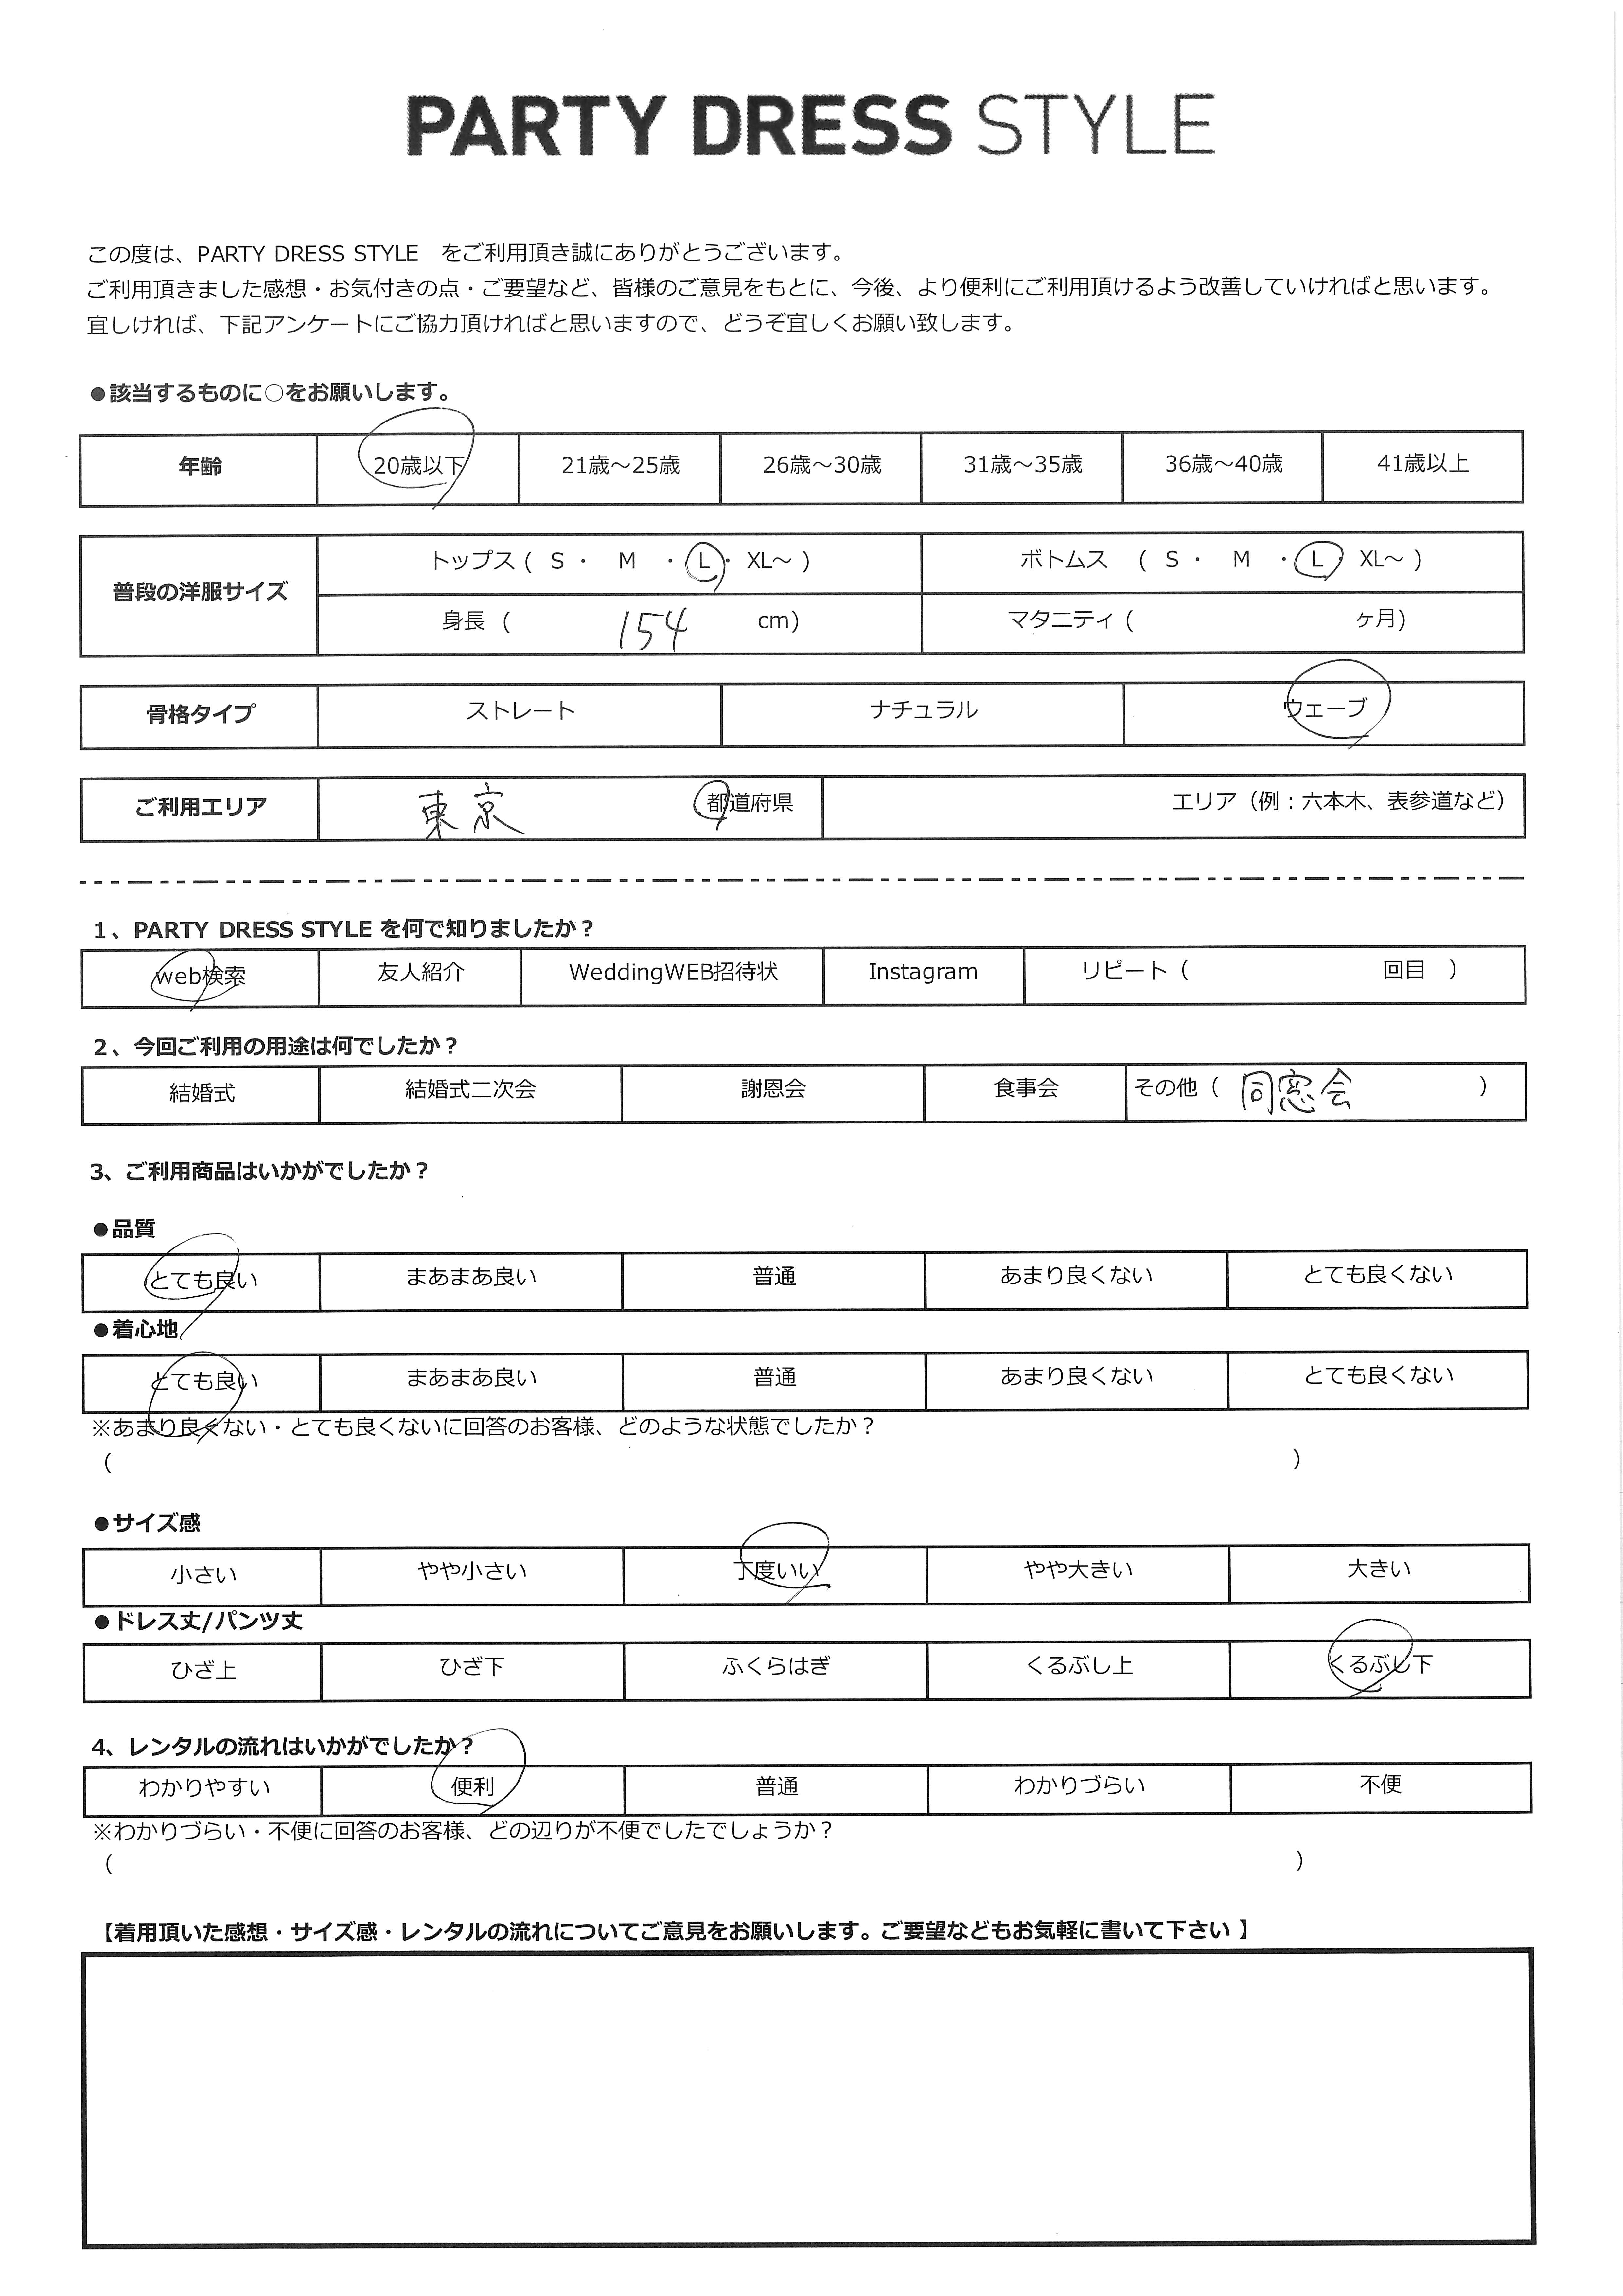 PARTY DRESS STYLE
この度は、PARTY DRESS STYLE をご利用頂き誠にありがとうございます。
ご利用頂きました感想・お気付きの点・ご要望など、皆様のご意見をもとに、今後、より便利にご利用頂けるよう改善していければと思います。
宜しければ、下記アンケートにご協力頂ければと思いますので、どうぞ宜しくお願い致します。
●該当するものに○をお願いします。
年齢 20歳以下 21歳～25歳 26歳～30歳 31歳～35歳 36歳～40歳 41歳以上
普段の洋服サイズ
トップス ( S ・ M ・ L ・ XL～ ) ボトムス ( S ・ M ・ L ・ XL～ )
身長 ( 154 cm) マタニティ ( ヶ月)
骨格タイプ ストレート ナチュラル ウェーブ
ご利用エリア 東京 都道府県 エリア（例：六本木、表参道など）
1、PARTY DRESS STYLE を何で知りましたか？
web検索 友人紹介 WeddingWEB招待状 Instagram リピート（ 回目 ）
2、今回ご利用の用途は何でしたか？
結婚式 結婚式二次会 謝恩会 食事会 その他（ 同窓会 ）
3、ご利用商品はいかがでしたか？
●品質
とても良い まあまあ良い 普通 あまり良くない とても良くない
●着心地
とても良い まあまあ良い 普通 あまり良くない とても良くない
※あまり良くない・とても良くないに回答のお客様、どのような状態でしたか？
（ ）
●サイズ感
小さい やや小さい 丁度いい やや大きい 大きい
●ドレス丈/パンツ丈
ひざ上 ひざ下 ふくらはぎ くるぶし上 くるぶし下
4、レンタルの流れはいかがでしたか？
わかりやすい 便利 普通 わかりづらい 不便
※わかりづらい・不便に回答のお客様、どの辺りが不便でしたでしょうか？
（ ）
【着用頂いた感想・サイズ感・レンタルの流れについてご意見をお願いします。ご要望などもお気軽に書いて下さい 】